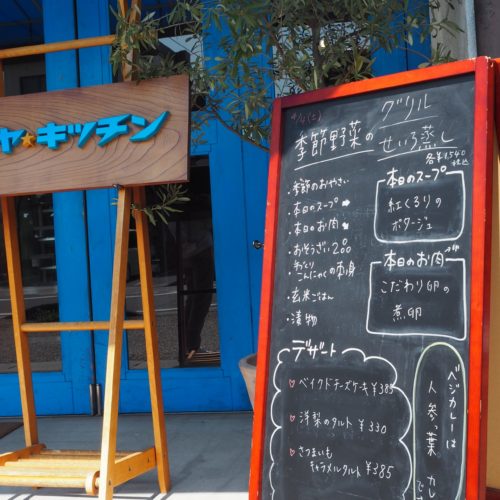 ヤ★キッチン
季節野菜の
グリル
せいろ蒸し
各¥1,540
税込
・季節のおやさい
・本日のスープ
・本日のお肉
・おそうざい2品
・手づくり
こんにゃくの刺身
・玄米ごはん
・漬物
本日のスープ
紅くるりの
ポタージュ
本日のお肉
こだわり卵の
煮卵
デザート
ベイクドチーズケキ¥385
洋梨のタルト ¥330
さつまいも
キャラメルタルト ¥385
ベジカレーは
人参っ葉